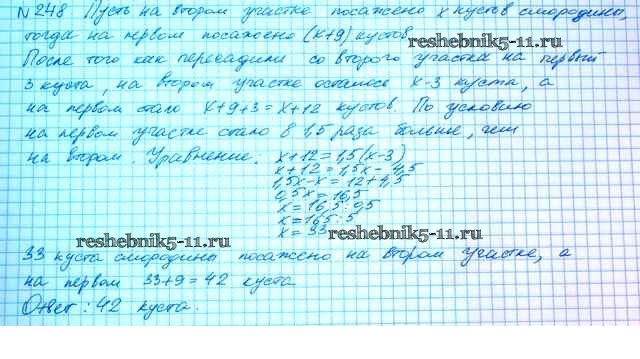 №248 Пусть на втором участке посажено x кустов смородины,
тогда на первом посажено (x+9) кустов
reshebnik5-11.ru
После того как пересадили со второго участка на первый
3 куста, на втором участке осталось x-3 куста, а
на первом стало x+9+3=x+12 кустов. По условию
на первом участке стало в 1,5 раза больше, чем
на втором. Уравнение. x+12=1,5(x-3)
x+12=1,5x-4,5
1,5x-x=12+4,5
0,5x=16,5
x=16,5:0,5
x=165:5
x=33
reshebnik5-11.ru
reshebnik5-11.ru
33 куста смородины посажено на втором участке, а
на первом 33+9=42 куста
Ответ: 42 куста.